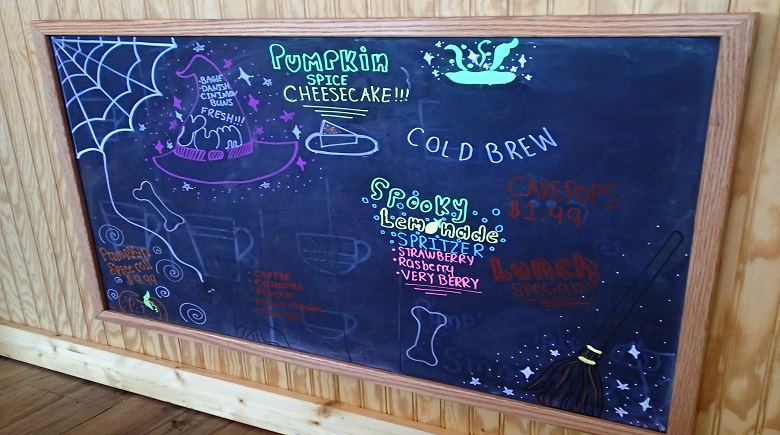 PUMPKIN
SPICE
CHEESECAKE!!!
BAGLE
·DANISH
CINIMON
BUNS
FRESH!!!
Yum
COLD BREW
CAKEPOPS
$1.99
Spooky
Lemonade
SPRITZER
·STRAWBERRY
·Rasberry
·VERY BERRY
Lunch
SPECIALS!!
Pumpkin
Spice
·COFFEE
·Caramel
·Mocha